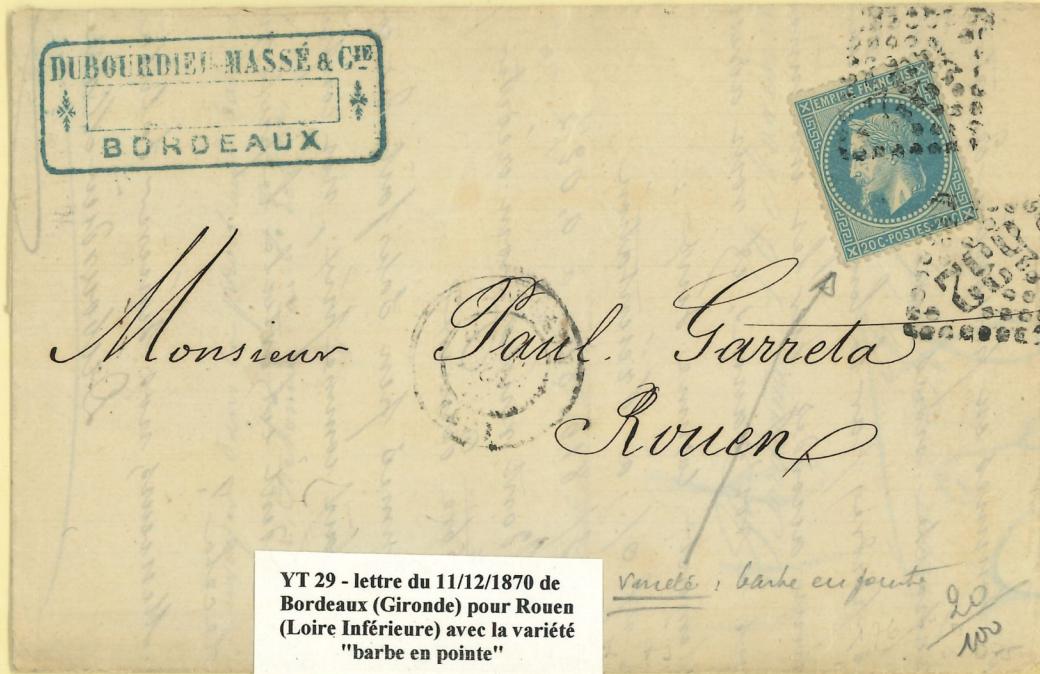 DUBOURDIEU MASSÉ & CIE
BORDEAUX
EMPIRE FRANCAIS
20C-POSTES-20C
Monsieur Paul. Garreta
Rouen
YT 29 - lettre du 11/12/1870 de
Bordeaux (Gironde) pour Rouen
(Loire Inférieure) avec la variété
"barbe en pointe"
variété : barbe en pointe
20
100